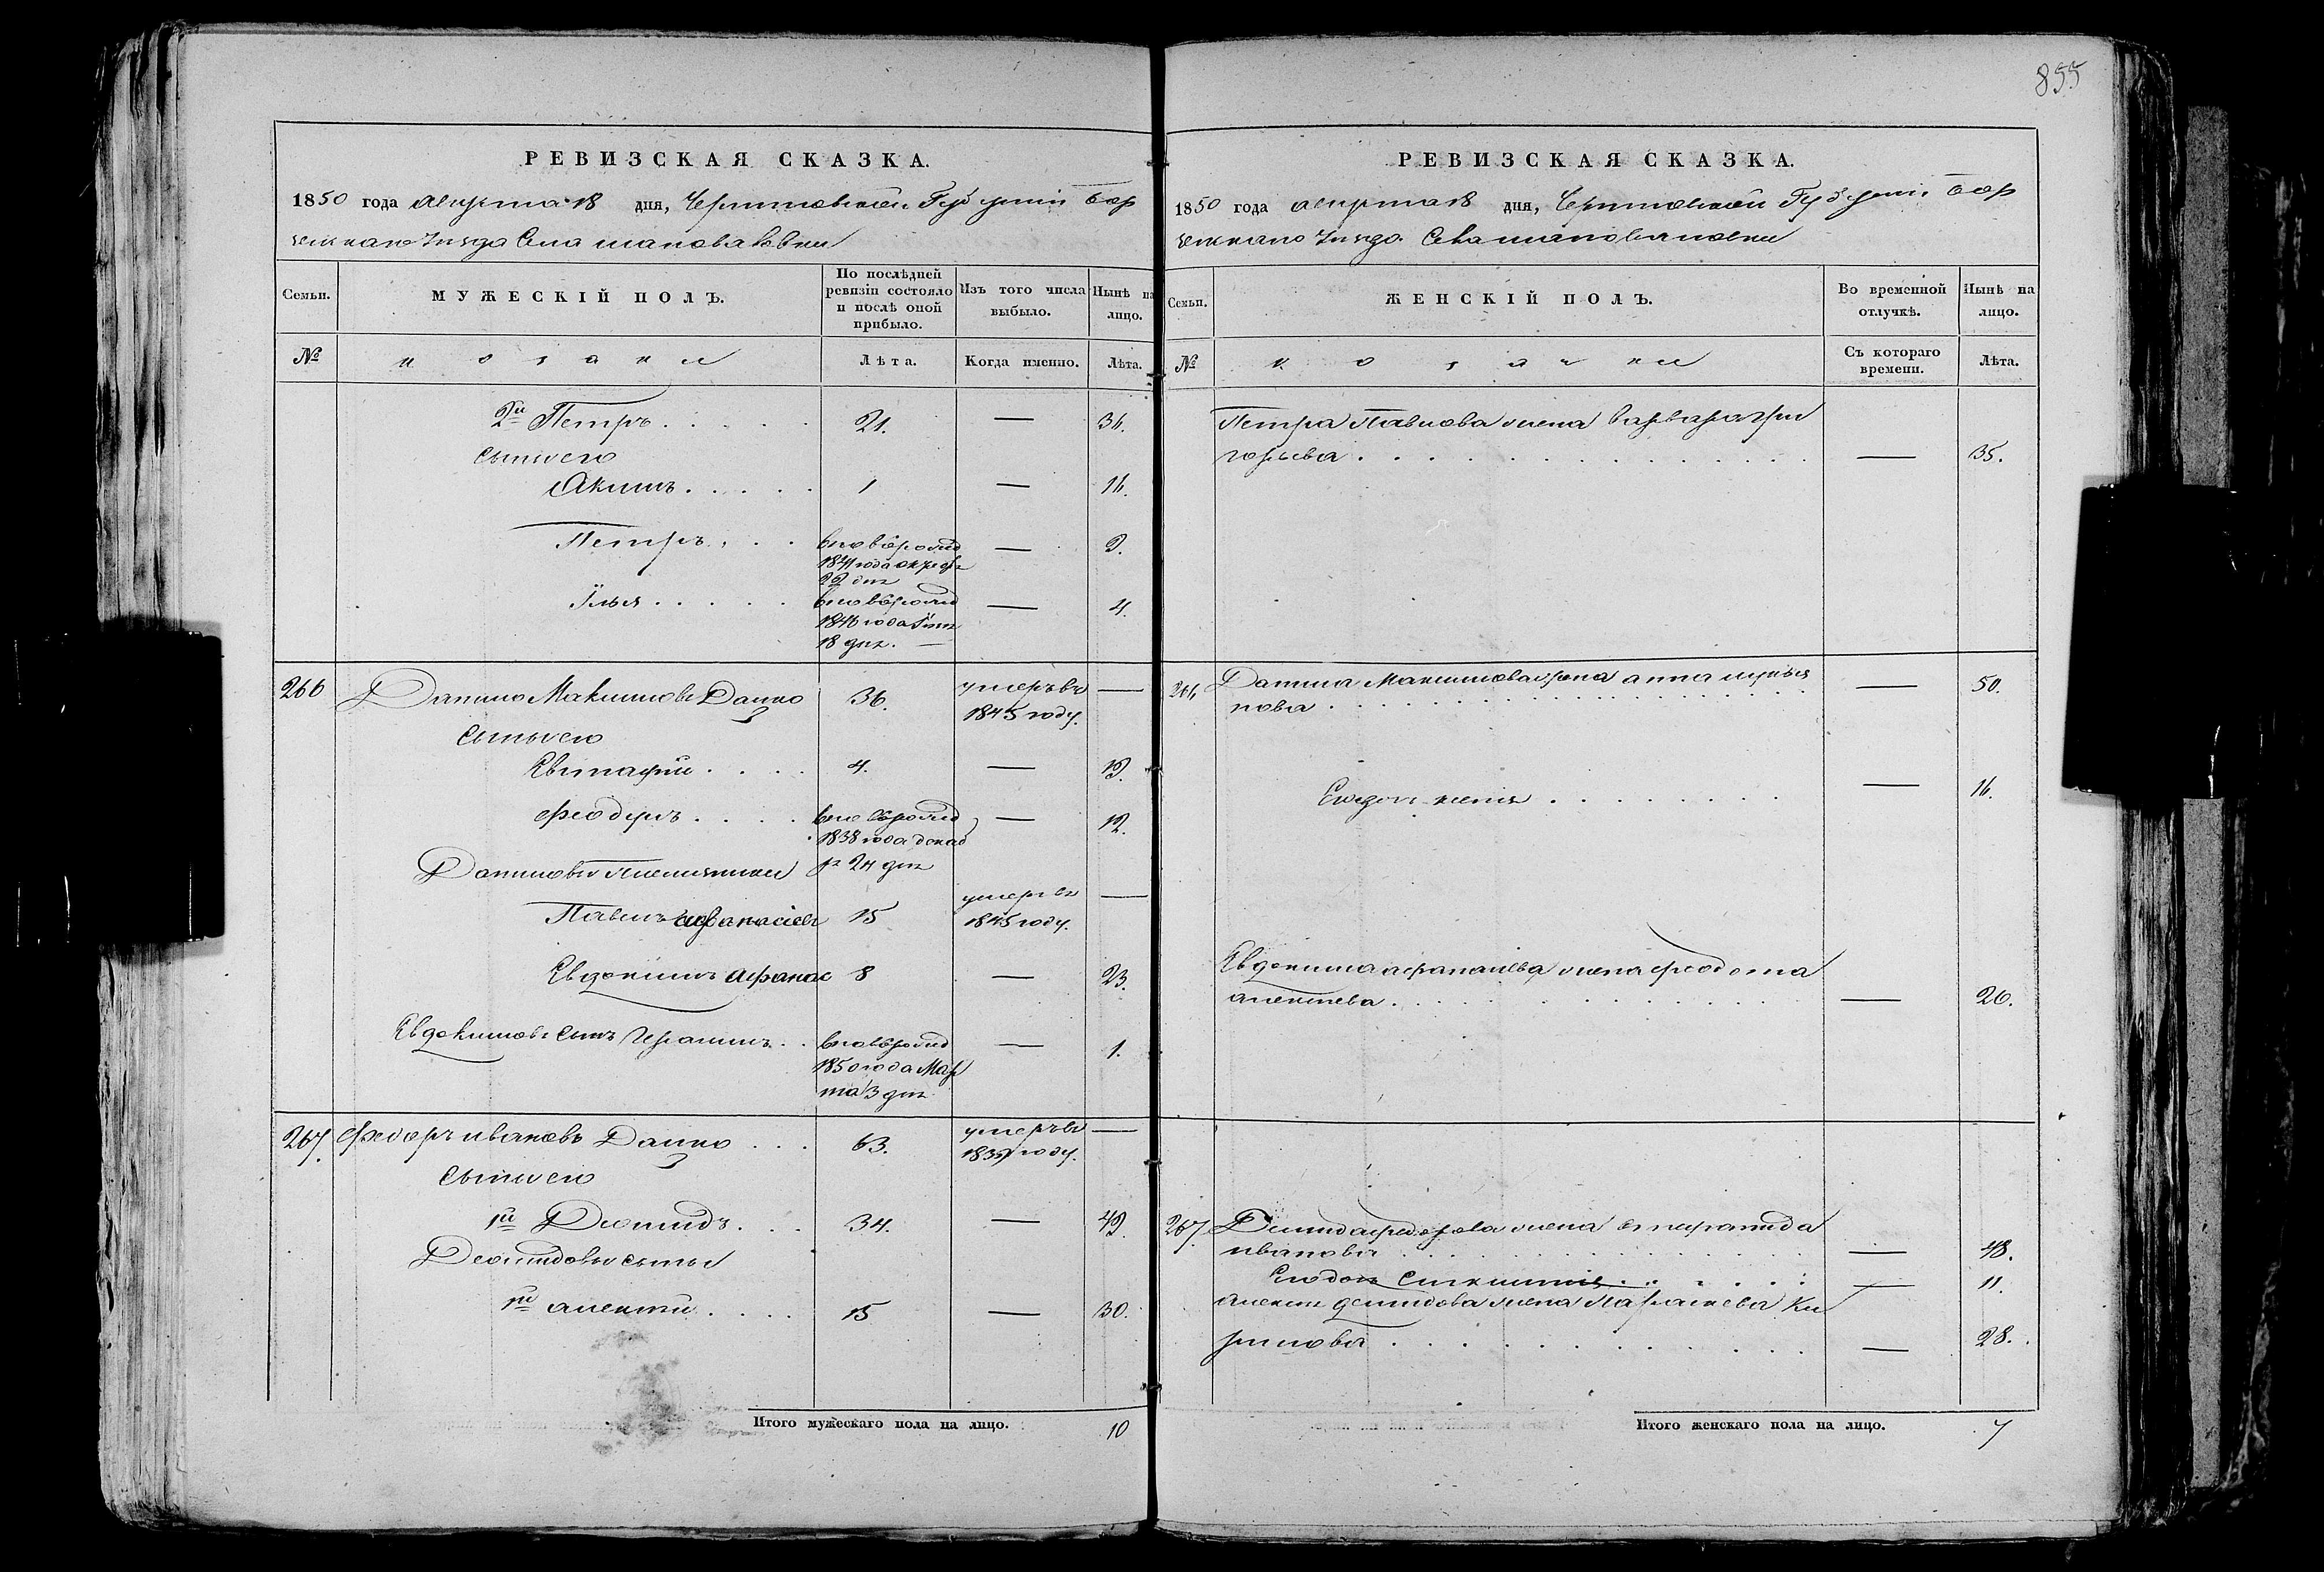 855
РЕВИЗСКАЯ СКАЗКА.
1850 года августа 18 дня, Черниговской Губерніи Бор
зенскаго Уезда Села Шаповаловки
Семьи.
МУЖЕСКІЙ ПОЛЪ.
По послѣдней ревизіи состояло и послѣ оной прибыло.
Изъ того числа выбыло.
Нынѣ на лицо.
№
козаки
Лѣта.
Когда именно.
Лѣта.
2й Петръ . . . . . 21. — 36.
сыны его
Акимъ . . . . . 1 — 16.
Петръ . . . вновьрожд — 9.
1841 года
22 дня
Илья . . . . . вновьрожд — 4.
1846 года
18 дня. —
266 Данило Максимовъ Данко 36. умеръ въ —
1845 году.
сыны его
Евстафій . . . . 4. — 19.
Феодулъ . . . . вновьрожд — 12.
1838 года декаб
ря 24 дня
Даниловы племянники
Павелъ Афанасіевъ 15 умеръ въ —
1845 году.
Евдокимъ Афанас 8 — 23.
Евдокимовъ сынъ Герасимъ . . вновьрожд — 1.
1850 года Мар
та 3 дня
267. Федоръ Ивановъ Данко . . . 63. умеръ въ —
году.
сыны его
1й Демидъ . . . 34. — 49.
Демидовы сыны
1й Алексѣй . . . . 15 — 30.
Итого мужескаго пола на лицо. 10
РЕВИЗСКАЯ СКАЗКА.
1850 года августа 18 дня, Черниговской Губерніи Бор
зенскаго Уезда Села Шаповаловки
Семьи.
ЖЕНСКІЙ ПОЛЪ.
Во временной отлучкѣ.
Нынѣ на лицо.
№
козачки
Съ котораго времени.
Лѣта.
Петра Павлова жена Варвара Гри
горьева . . . . . . . . . . . . . — 35.
266 Данила Максимова жена Анна Лукья
нова . . . . . . . . . . . . . . — 50.
Его дочь . . . . . . . — 16.
Евдокима Афанасіева жена Феодота
Алексѣева . . . . . . . . . . . . — 26.
267. Демида Федорова жена
Иванова . . . . . . . . . . . . — 48.
Его дочь . . . . . . — 11.
Алексѣя Демидова жена Параскева Ки
рилова . . . . . . . . . . . . — 28.
Итого женскаго пола на лицо. 7